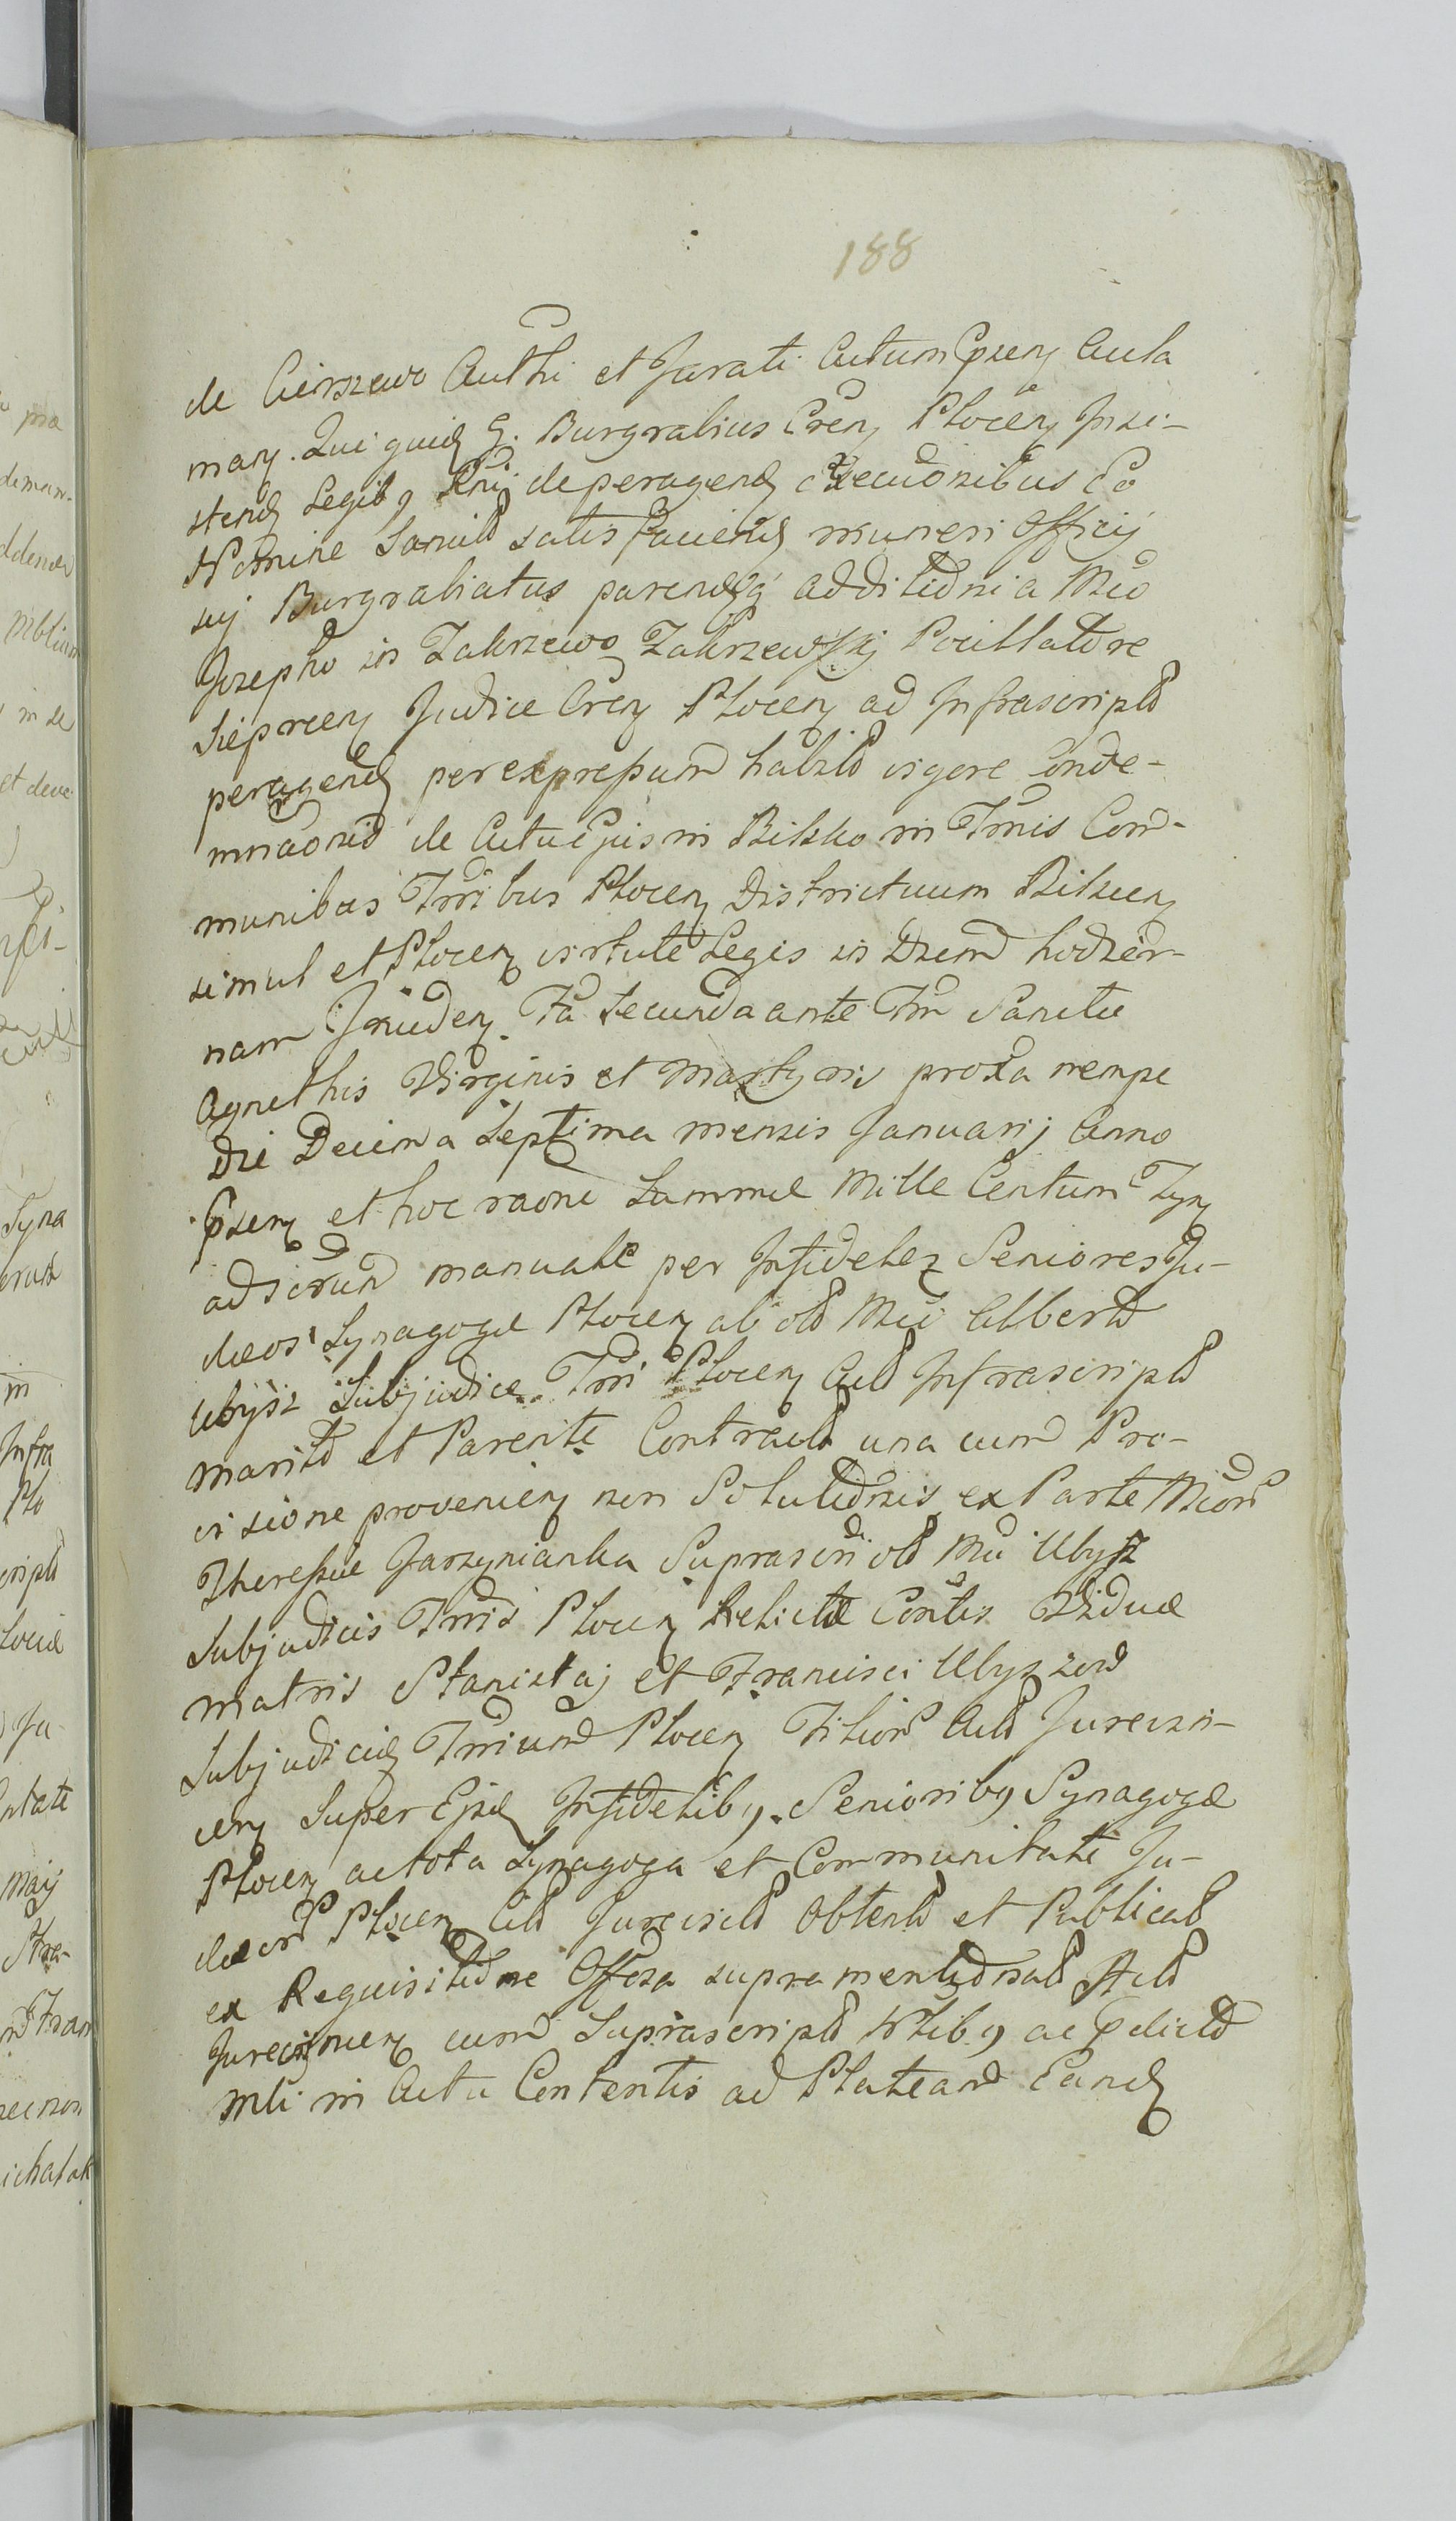 188
de Cierszewo Authi et Jurati Actum Cpsen Aula
man. Qui quid G. Burgrabius Cren Plocen Insi-
stend Legib9 Rni de peragend executionibus Eo
Nomine Sancitd satis faciend muneri Officij
sui Burgrabiatus parendq additiodni a Mco
Josepho in Zakrzewo Zakrzewskj Pocillatore
Sieprcen Judice Cren Plocen ad Infrascriptd
peragend per expressum habitd vigore Conde-
mnaonis de Actu ejus in Bilsko in Tmis Com-
munibus Trribus Plocen Districtuum Bilscen
simul et Plocen virtute Legis in Diem hodier-
nam Inciden Fa Secunda ante Fm Sanctae
Agnethis Virginis et Martyris proxa nempe
die Decima Septima mensis Januarij Anno
Cpsen et hoc raone Summae Mille Centum Tyn
ad scrum manuale per Infideles Seniores Ju-
daeos Synagogae Plocen ab old Mco Albertd
Ubysz Subjudice Trri Plocen Actd Infrascriptd
maritd et Parente Contractd una cum Pro-
visione provenien non Solutidnis ex Parte Micor
Theressae Jarzynianka Suprascri old Mci Ubysz
Subjudicis Trris Plocen Relictae Contis Viduae
matris Stanislaj et Francisci Ubyszow
Subjudicid Trrium Plocen Filior Actd Jurevin-
cen Super Ejsd Infidelib9 Seniorib9 Synagogae
Plocen ac tota Synagoga et Communitate Ju-
daeor Plocen Citd Jurevictd Obtentd et Publicatd
ex Requisitidne Offcsa supramentidnatd Actd
Jurevincen cum Suprascriptd Nblib9 ac
mli in Actu Contentis ad Plateam Eand